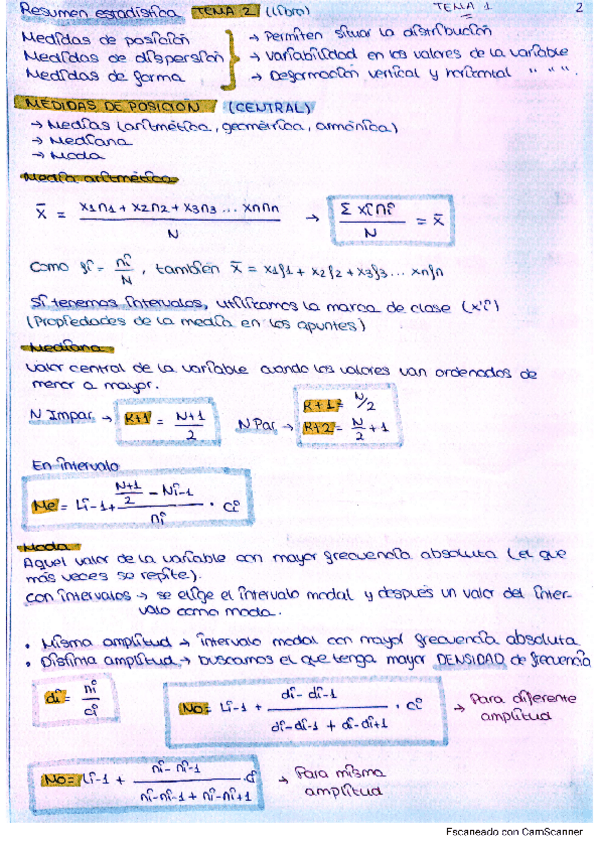 Resumen estadística TEMA 2 (libro) TEMA 1 2
Medidas de posición → Permiten situar la distribución
Medidas de dispersión → Variabilidad en los valores de la variable
Medidas de forma → Deformación vertical y horizontal " " ".
MEDIDAS DE POSICIÓN (CENTRAL)
→ Medias (aritmética, geométrica, armónica)
→ Mediana
→ Moda
Media aritmética
x̄ = (x1n1 + x2n2 + x3n3 ... xnnn) / N → Σ xini / N = x̄
Como fi = ni / N, también x̄ = x1f1 + x2f2 + x3f3 ... xnfn
Si tenemos intervalos, utilizamos la marca de clase (x'i)
(Propiedades de la media en los apuntes)
Mediana
Valor central de la variable cuando los valores van ordenados de
menor a mayor.
N Impar → R+1 = (N+1) / 2 N Par → R+1 = N/2
R+2 = N/2 + 1
En intervalo
Me = Li-1 + ((N+1)/2 - Ni-1) / ni · ci
Moda
Aquel valor de la variable con mayor frecuencia absoluta (el que
más veces se repite).
Con intervalos → se elige el intervalo modal y después un valor del inter-
valo como moda.
• Misma amplitud → intervalo modal con mayor frecuencia absoluta
• Distinta amplitud → buscamos el que tenga mayor DENSIDAD de frecuencia
di = ni / ci Mo = Li-1 + (di - di-1) / (di - di-1 + di - di+1) · ci → Para diferente
amplitud
Mo = Li-1 + (ni - ni-1) / (ni - ni-1 + ni - ni+1) · ci → Para misma
amplitud
Escaneado con CamScanner